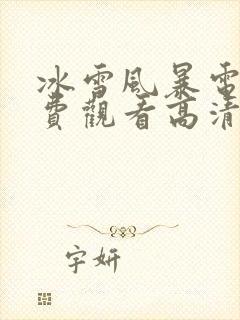 冰雪風暴電
費觀看高清
字妍